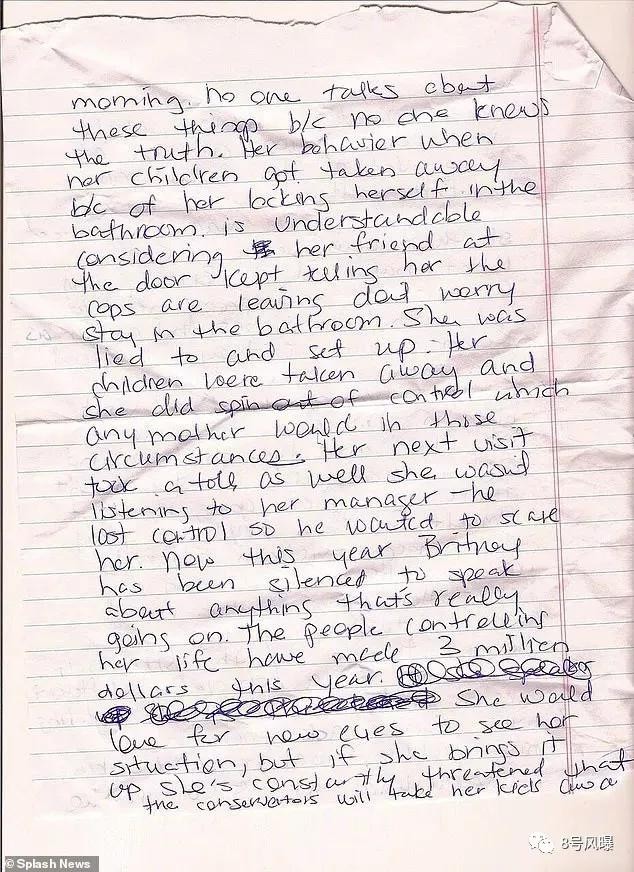 morning. no one talks about
these things b/c no one knows
the truth. Her behavior when
her children got taken away
b/c of her locking herself in the
bathroom. is understandable
considering her friend at
the door kept telling her the
cops are leaving don't worry
stay in the bathroom. She was
lied to and set up. Her
children were taken away and
she did spin out of control which
any mother would in those
circumstances. Her next visit
took a toll as well she wasnt
listening to her manager - he
lost control so he wanted to scare
her. Now this year Britney
has been silenced to speak
about anything that's really
going on. The people controlling
her life have made 3 million
dollars this year.
She would
love for new eyes to see her
situation, but if she brings it
up she's constantly threatened that
the conservators will take her kids awa
8号风曝
© Splash News